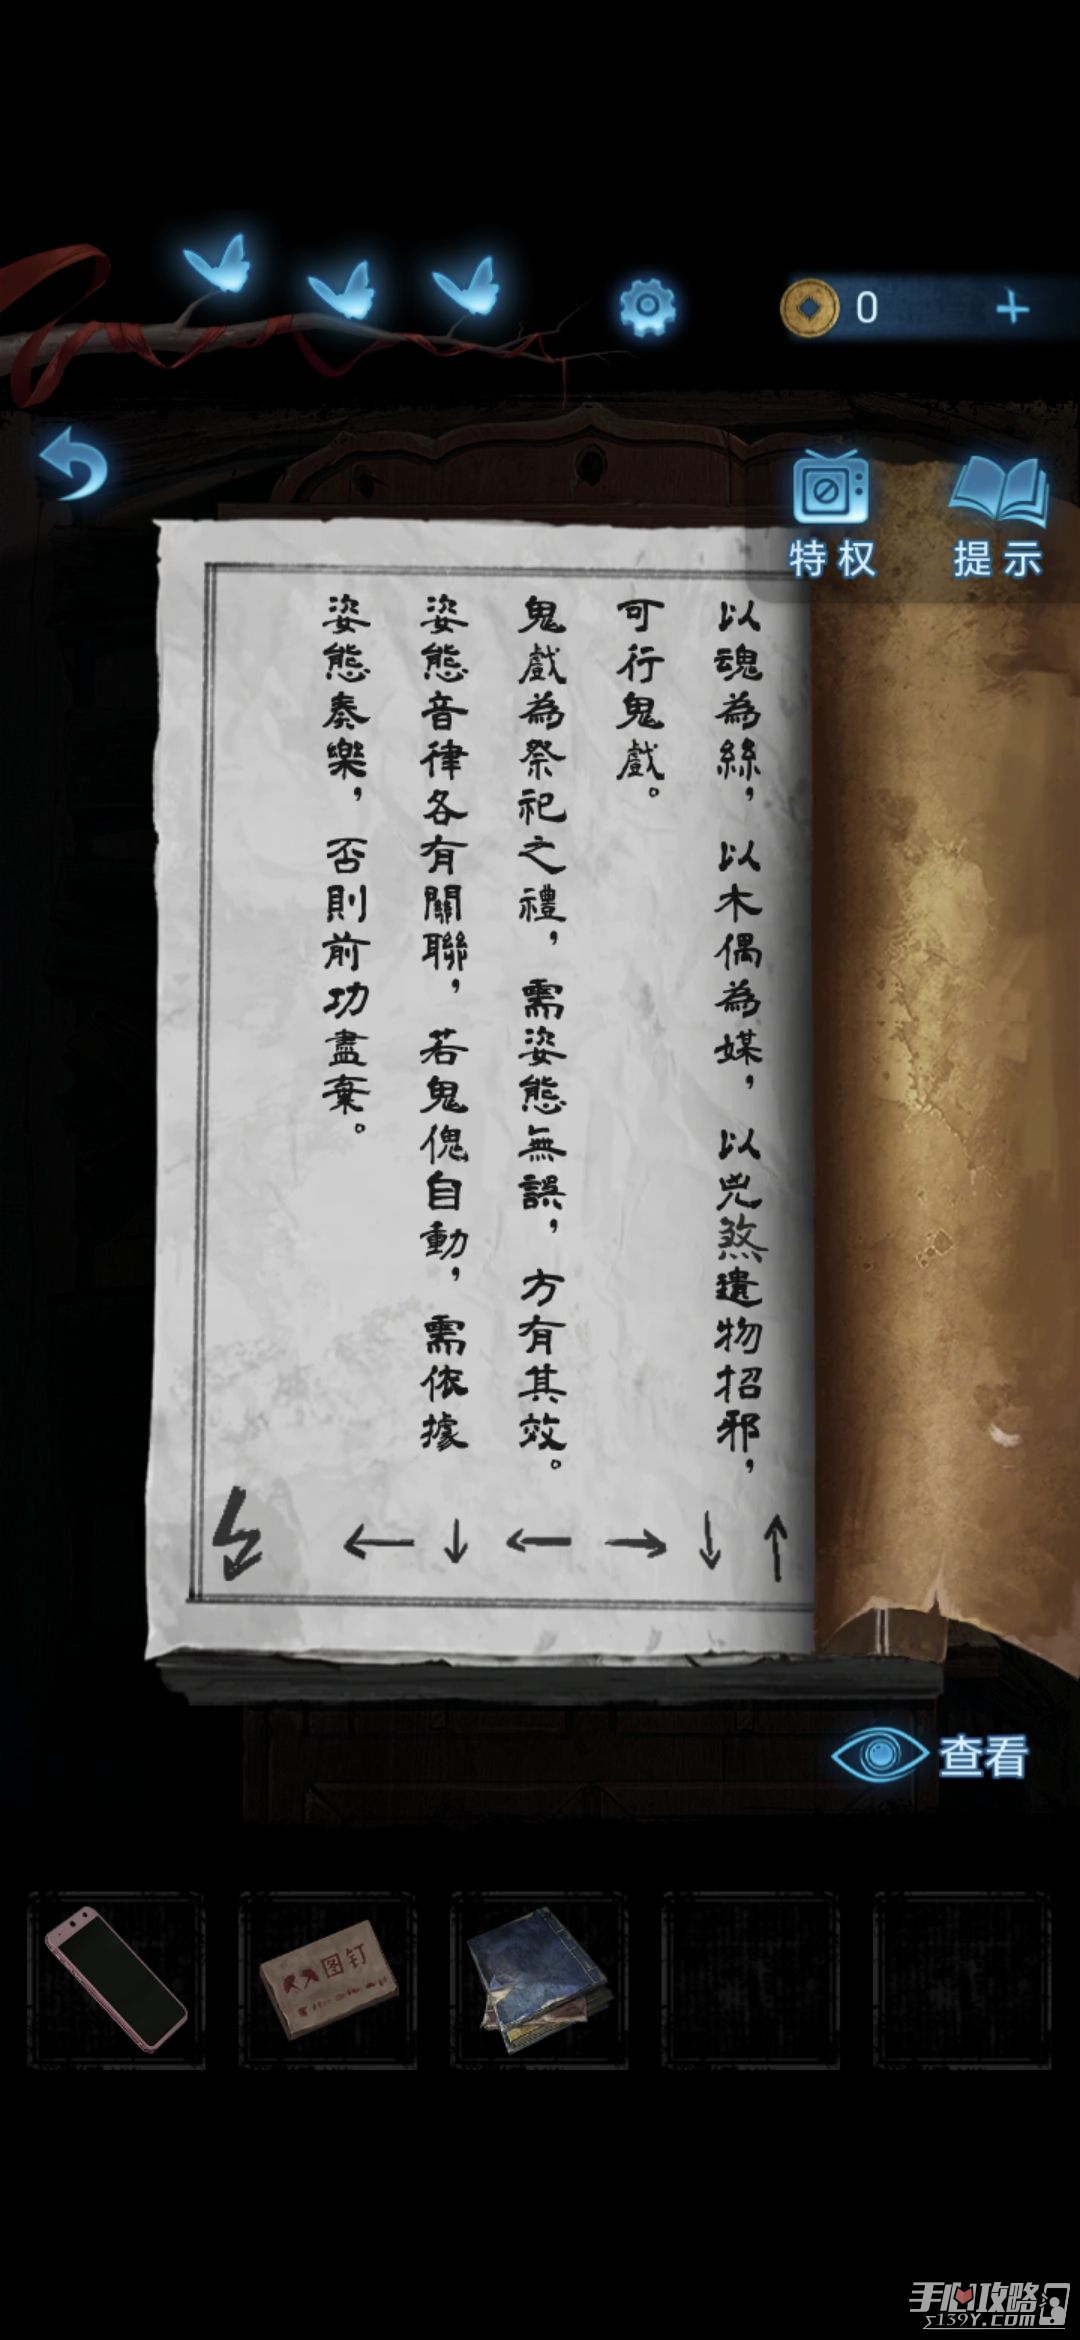 0
特权
提示
以魂為絲，以木偶為媒，以兇煞遺物招邪，
可行鬼戲。
鬼戲為祭祀之禮，需姿態無誤，方有其效。
姿態音律各有關聯，若鬼傀自動，需依據
姿態奏樂，否則前功盡棄。
↑ ↓ → ← ↓ ←
查看
图钉
手心攻略
5139Y.COM